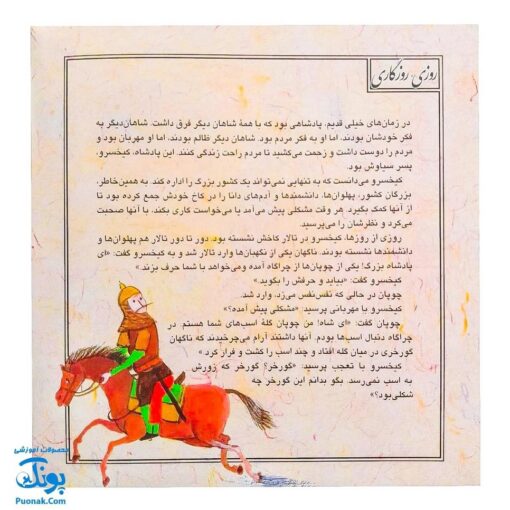 روزی روزگاری
در زمان‌های خیلی قدیم، پادشاهی بود که با همهٔ شاهان دیگر فرق داشت. شاهان‌دیگر به
فکر خودشان بودند، اما او به فکر مردم بود. شاهان دیگر ظالم بودند، اما او مهربان بود و
مردم را دوست داشت و زحمت می‌کشید تا مردم راحت زندگی کنند. این پادشاه، کیخسرو،
پسر سیاوش بود.
کیخسرو می‌دانست که به تنهایی نمی‌تواند یک کشور بزرگ را اداره کند. به همین‌خاطر،
بزرگان کشور، پهلوان‌ها، دانشمندها و آدم‌های دانا را در کاخ خودش جمع کرده بود تا
از آنها کمک بگیرد. هر وقت مشکلی پیش می‌آمد یا می‌خواست کاری بکند، با آنها صحبت
می‌کرد و نظرشان را می‌پرسید.
روزی از روزها، کیخسرو در تالار کاخش نشسته بود. دور تا دور تالار هم پهلوان‌ها و
دانشمندها نشسته بودند. ناگهان یکی از نگهبان‌ها وارد تالار شد و به کیخسرو گفت: «ای
پادشاه بزرگ! یکی از چوپان‌ها از چراگاه آمده ومی‌خواهد با شما حرف بزند.»
کیخسرو گفت: «بیاید و حرفش را بگوید.»
چوپان در حالی که نفس‌نفس می‌زد، وارد شد.
کیخسرو با مهربانی پرسید: «مشکلی پیش آمده؟»
چوپان گفت: «ای شاه! من چوپان گلهٔ اسب‌های شما هستم. در
چراگاه دنبال اسب‌ها بودم. آنها داشتند آرام می‌چرخیدند که ناگهان
گورخری در میان گله افتاد و چند اسب را کشت و فرار کرد.»
کیخسرو با تعجب پرسید: «گورخر؟ گورخر که زورش
به اسب نمی‌رسد. بگو بدانم این گورخر چه
شکلی‌بود؟»
محصولات آموزشی
پونک
Puonak.Com